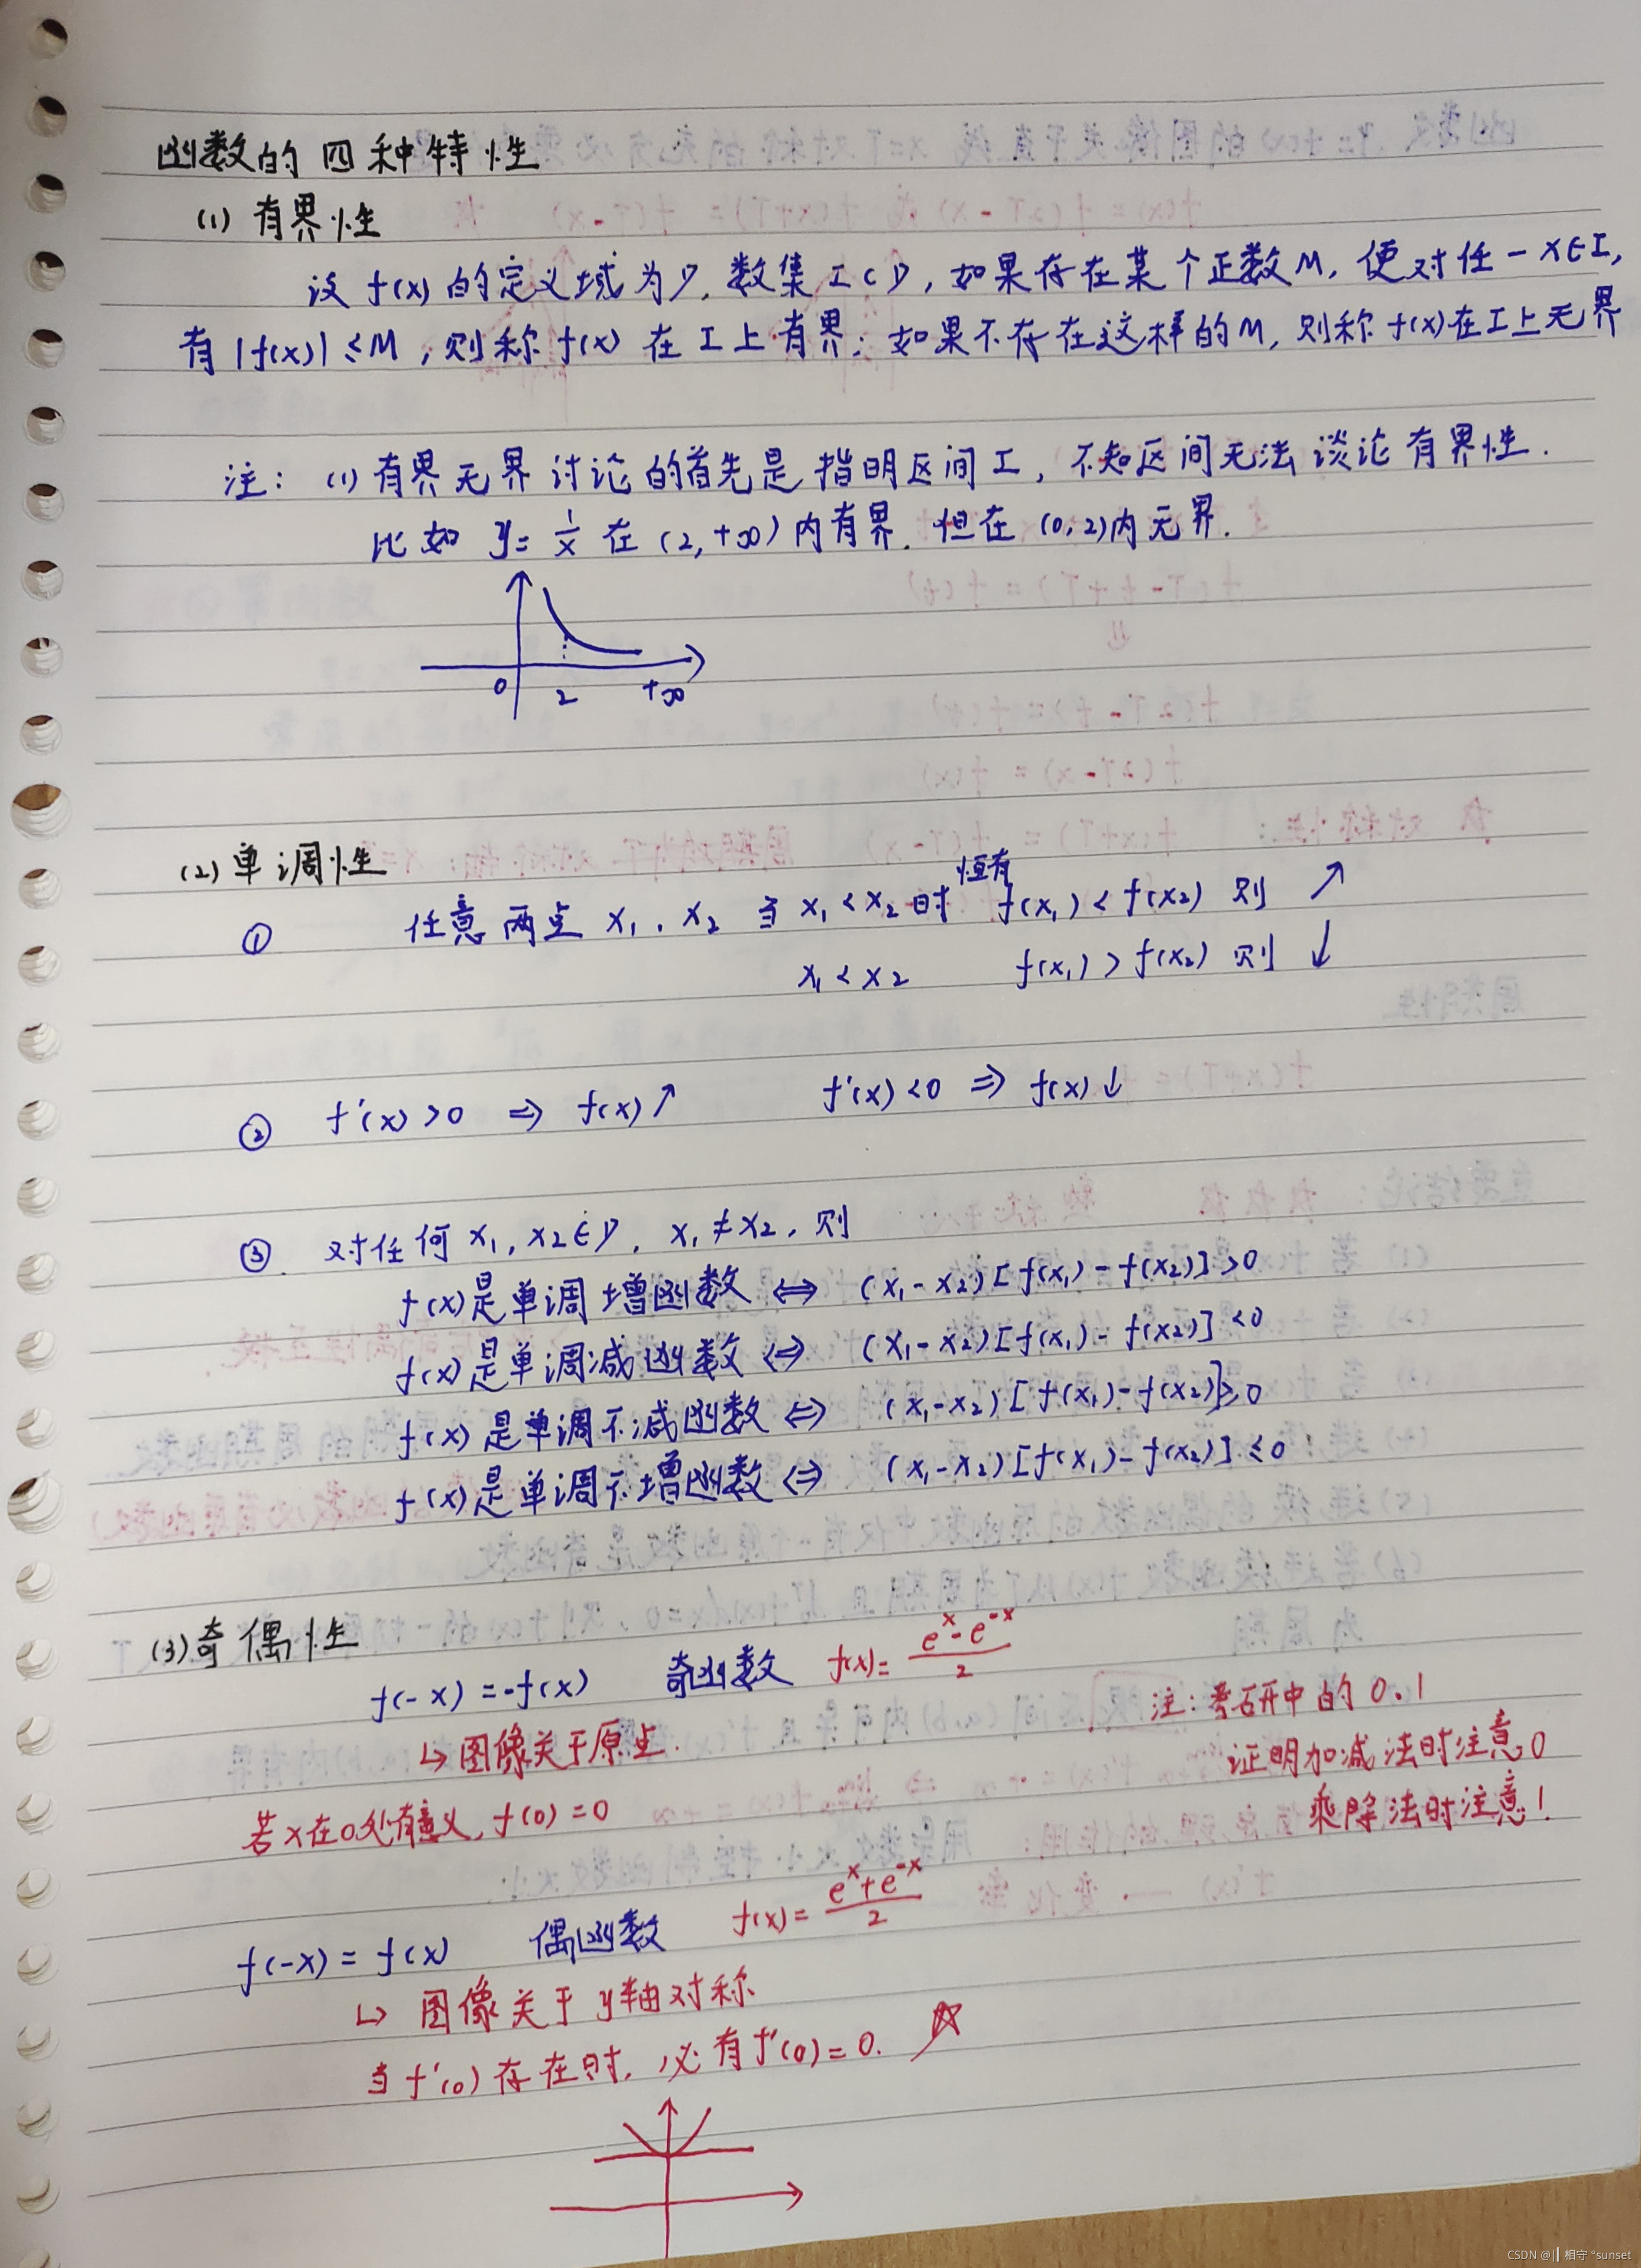 函数的四种特性
(1) 有界性
设 f(x) 的定义域为D, 数集 I⊂D, 如果存在某个正数M, 使对任一 x∈I,
有 |f(x)| ≤ M, 则称 f(x) 在 I 上有界; 如果不存在这样的M, 则称 f(x)在I上无界
注: (1) 有界无界讨论的首先是指明区间I, 不知区间无法谈论有界性.
比如 y= 1/x 在 (2,+∞) 内有界. 但在 (0,2)内无界.
0 2 +∞
(2) 单调性
① 任意两点 x₁, x₂ 当 x₁<x₂时 恒有 f(x₁)<f(x₂) 则 ↗
x₁<x₂ f(x₁)>f(x₂) 则 ↓
② f'(x)>0 ⇒ f(x)↗ f'(x)<0 ⇒ f(x)↓
③. 对任何 x₁, x₂∈D, x₁≠x₂, 则
f(x)是单调增函数 ⇔ (x₁-x₂)[f(x₁)-f(x₂)]>0
f(x)是单调减函数 ⇔ (x₁-x₂)[f(x₁)-f(x₂)]<0
f(x)是单调不减函数 ⇔ (x₁-x₂)[f(x₁)-f(x₂)]≥0
f(x)是单调不增函数 ⇔ (x₁-x₂)[f(x₁)-f(x₂)]≤0
(3)奇偶性
f(-x)=-f(x) 奇函数 f(x)= (eˣ-e⁻ˣ)/2
↳ 图像关于原点.
注: 考研中的 0.1
证明加减法时注意0
乘除法时注意1
若x在0处有意义, f(0)=0
f(-x)=f(x) 偶函数 f(x)= (eˣ+e⁻ˣ)/2
↳ 图像关于y轴对称
当 f'(0) 存在时, 必有f'(0)=0. ☆
CSDN @‖ 相守 °sunset